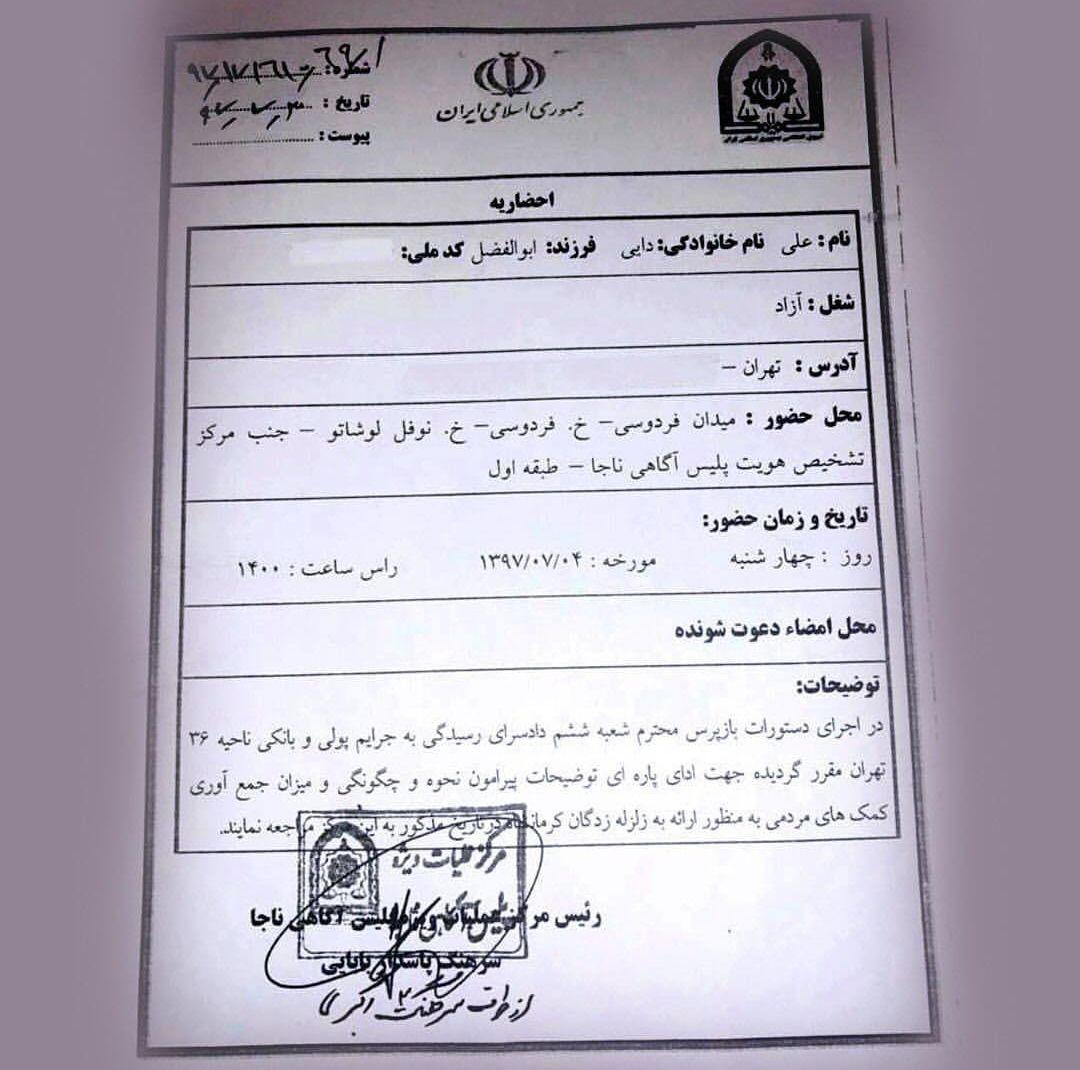 جمهوری اسلامی ایران
شماره :
تاریخ :
پیوست :
احضاریه
نام : علی نام خانوادگی: دایی فرزند: ابوالفضل کد ملی:
شغل : آزاد
آدرس : تهران –
محل حضور : میدان فردوسی– خ. فردوسی– خ. نوفل لوشاتو – جنب مرکز
تشخیص هویت پلیس آگاهی ناجا – طبقه اول
تاریخ و زمان حضور:
روز : چهار شنبه مورخه : ۱۳۹۷/۰۷/۰۴ راس ساعت : ۱۴۰۰
محل امضاء دعوت شونده
توضیحات:
در اجرای دستورات بازپرس محترم شعبه ششم دادسرای رسیدگی به جرایم پولی و بانکی ناحیه ۳۶
تهران مقرر گردیده جهت ادای پاره ای توضیحات پیرامون نحوه و چگونگی و میزان جمع آوری
کمک های مردمی به منظور ارائه به زلزله زدگان کرمانشاه در تاریخ مذکور به این مرکز مراجعه نمایند.
مرکز عملیات ویژه
رئیس مرکز عملیات ویژه پلیس آگاهی ناجا
سرهنگ پاسدار بابایی
از طرف سرهنگ ۲ اکبری